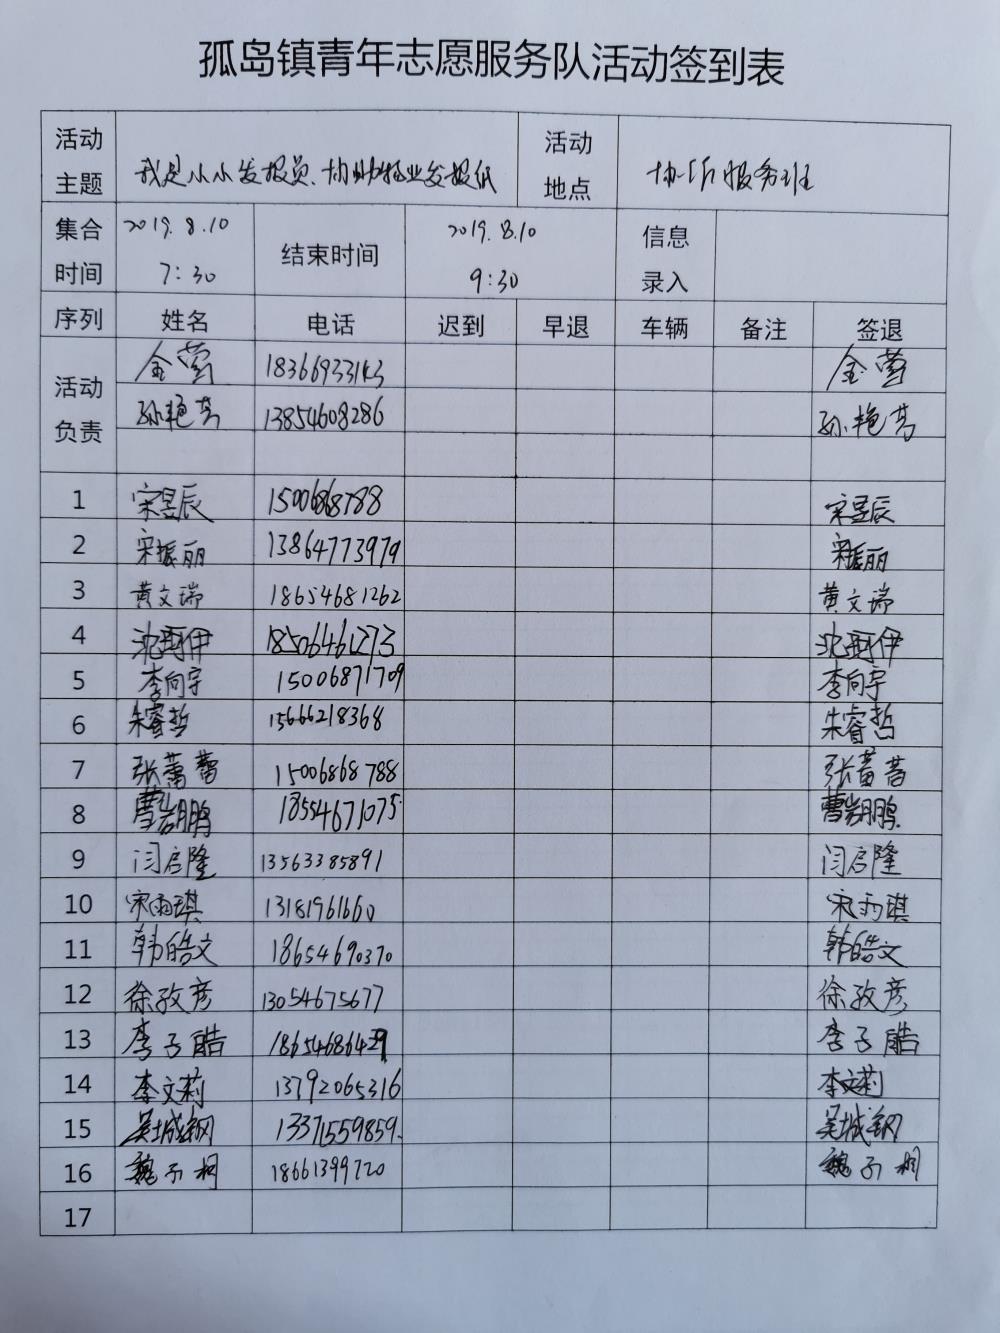 孤岛镇青年志愿服务队活动签到表
活动主题 我是小小发报员、协助物业发报纸 活动地点 协作服务班
集合时间 2019.8.10 7:30 结束时间 2019.8.10 9:30 信息录入
序列 姓名 电话 迟到 早退 车辆 备注 签退
活动负责 金莺 18366933143 金莺
孙艳芳 13854608286 孙艳芳
1 宋昱辰 15006868788 宋昱辰
2 宋振丽 13864773979 宋振丽
3 黄文瑞 18654681262 黄文瑞
4 沈珂伊 18506461273 沈珂伊
5 李向宇 15006871709 李向宇
6 朱睿哲 15666218368 朱睿哲
7 张 15006868788 张
8 曹岩鹏 18554671075 曹岩鹏
9 闫启隆 13563385891 闫启隆
10 宋雨琪 13181961660 宋雨琪
11 韩皓文 18654690370 韩皓文
12 徐孜彦 13054675677 徐孜彦
13 李子皓 18654686429 李子皓
14 李文莉 13792065316 李文莉
15 吴城钢 13371559859 吴城钢
16 魏子桐 18661399720 魏子桐
17